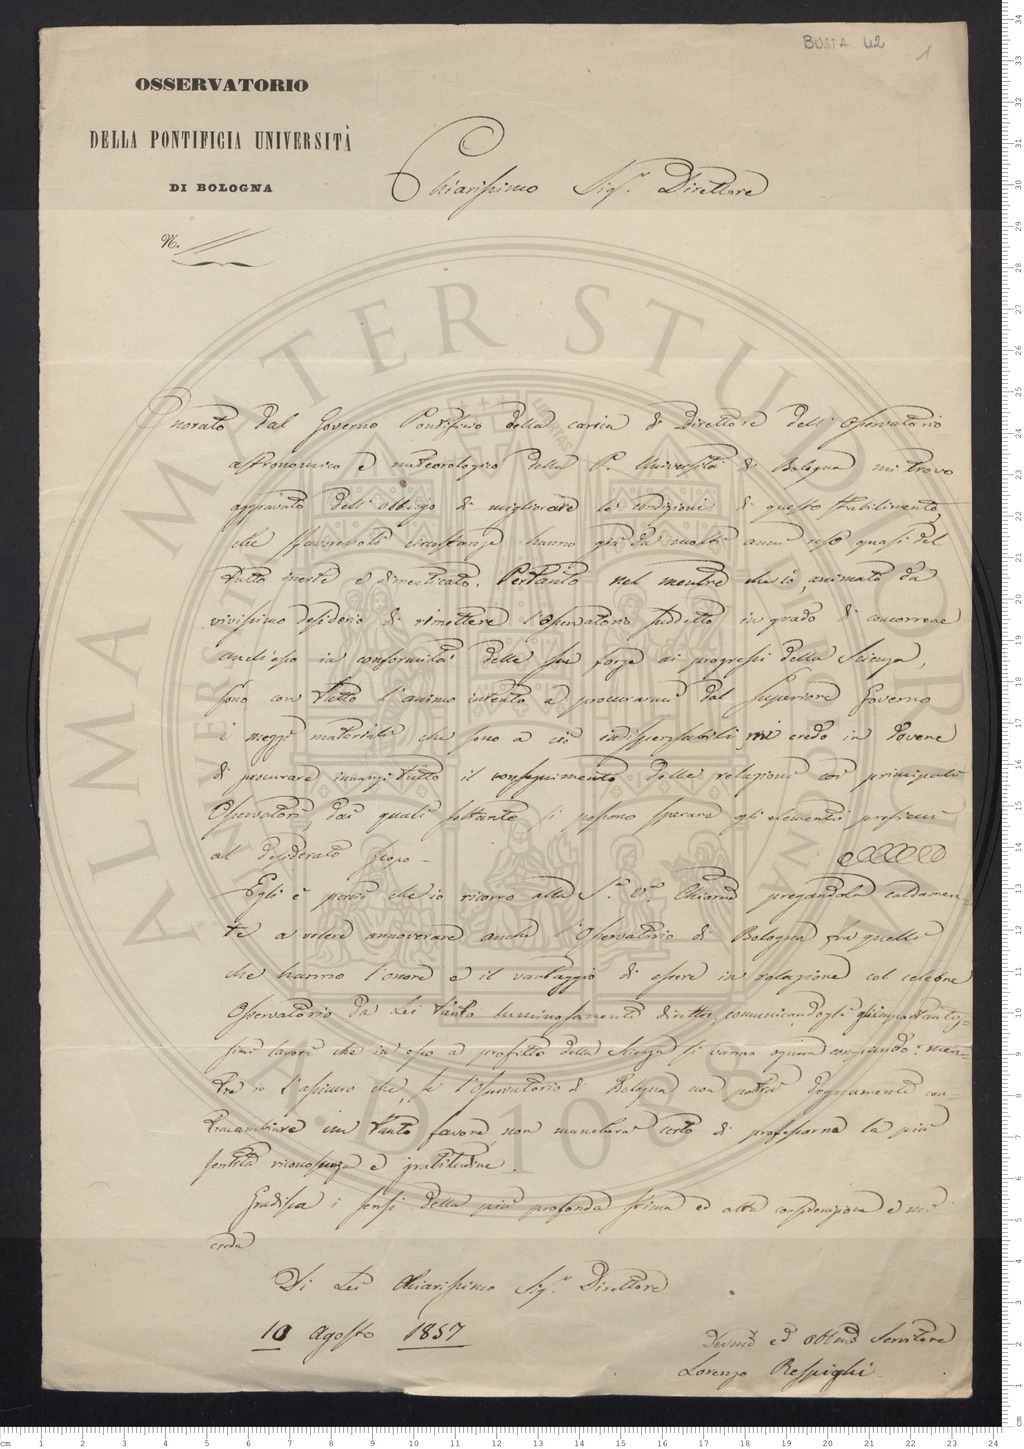 BUSTA 42
1
OSSERVATORIO
DELLA PONTIFICIA UNIVERSITÀ
DI BOLOGNA
N.
Chiarissimo Sigr. Direttore
Onorato dal Governo Pontificio della carica di Direttore dell'Osservatorio
astronomico e meteorologico della P. Università di Bologna mi trovo
aggravato dell'obbligo di migliorare le condizioni di questo stabilimento,
che sfavorevoli circostanze hanno già da molti anni reso quasi del
tutto inerte e dimenticato. Pertanto nel mentre che io, animato da
vivissimo desiderio di rimettere l'Osservatorio suddetto in grado di concorrere
anch'esso in conformità delle sue forze ai progressi della Scienza,
sono con tutto l'animo intento a procurarmi dal Superiore Governo
i mezzi materiali che sono a ciò indispensabili, mi credo in dovere
di procurare innanzi tutto il conseguimento delle relazioni coi principali
Osservatori, dai quali soltanto si possono sperare gli elementi proficui
al desiderato scopo -
Egli è perciò che io ricorro alla S.a V.a Chiarma pregandola caldamen-
te a volere annoverare anche l'Osservatorio di Bologna fra quelli
che hanno l'onore e il vantaggio di essere in relazione col celebre
Osservatorio da Lei tanto luminosamente diretto, comunicandogli gl'importantis-
simi lavori che in esso a profitto della Scienza si vanno ognora compiendo: men-
tre io l'assicuro che, se l'Osservatorio di Bologna non potrà degnamente con-
traccambiare un tanto favore, non mancherà certo di professarne la più
sentita riconoscenza e gratitudine.
Gradisca i sensi della più profonda stima ed alta considerazione e mi
creda
Di Lei Chiarissimo Sigr. Direttore
10 Agosto 1857
Devmo ed obbmo Servitore
Lorenzo Respighi
ALMA MATER STUDIORUM
A.D. 1088